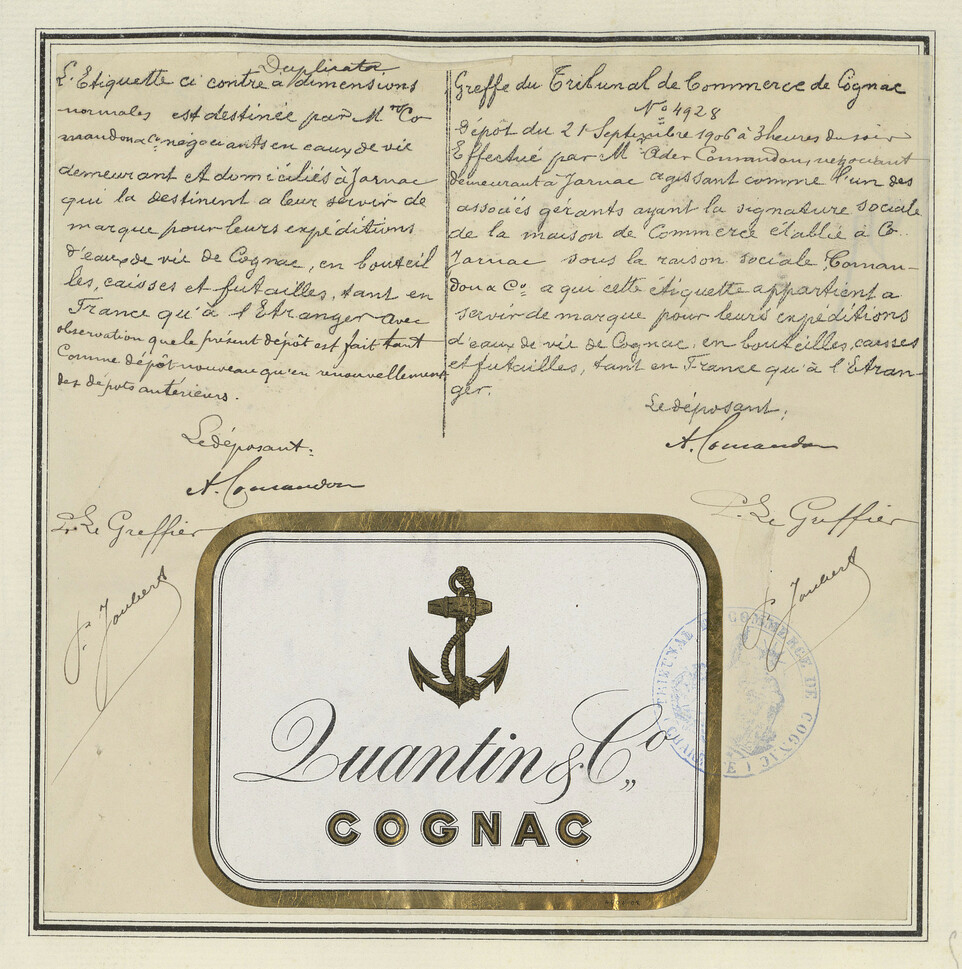 Duplicata
L'Etiquette ci contre à dimensions
normales est destinée par M.rs Co
mandon & Co négociants en eaux de vie
demeurant et domiciliés à Jarnac
qui la destinent a leur servir de
marque pour leurs expéditions
d'eaux de vie de Cognac, en bouteil
les, caisses et futailles, tant en
France qu'à l'Etranger avec
observation que le présent dépôt est fait tant
comme dépôt nouveau qu'en renouvellement
des dépots antérieurs.
Le déposant:
A. Comandon
Pr. Le Greffier
P. Joubert
Greffe du Tribunal de Commerce de Cognac
No 4928
Dépôt du 21 Septembre 1906 à 3 heures du soir
Effectué par M. Ader Comandon, negociant
demeurant à Jarnac agissant comme l'un des
associés gérants ayant la signature sociale
de la maison de Commerce établie à
Jarnac sous la raison sociale, Coman-
don & Co. a qui cette étiquette appartient a
servir de marque pour leurs expéditions
d'eaux de vie de Cognac, en bouteilles, caisses
et futailles, tant en France qu'à l'Etran-
ger.
Le déposant:
A. Comandon
P. Le Greffier
P. Joubert
Quantin & Co,,
COGNAC
TRIBUNAL DE COMMERCE DE COGNAC